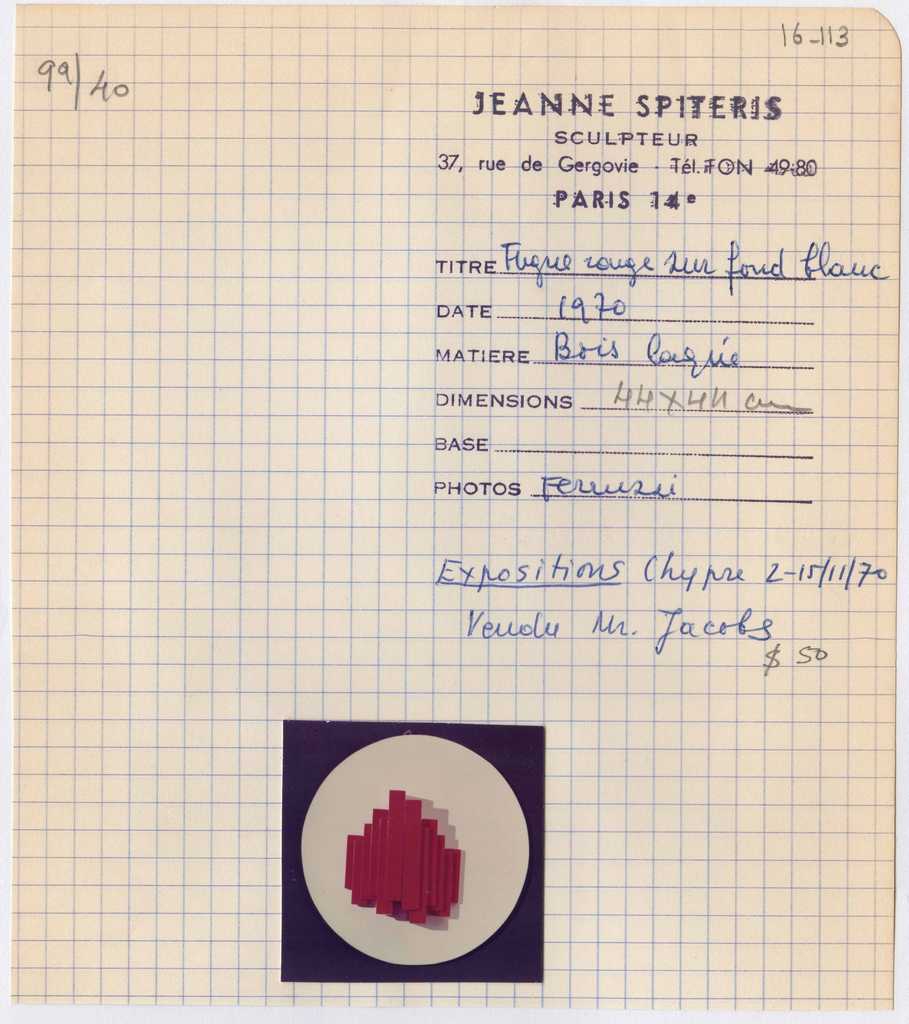 16-113
99/40
JEANNE SPITERIS
SCULPTEUR
37, rue de Gergovie - Tél. FON 49-80
PARIS 14e
TITRE Fugue rouge sur fond blanc
DATE 1970
MATIERE Bois laqué
DIMENSIONS 44x44 cm
BASE
PHOTOS Ferruzzi
Expositions Chypre 2-15/11/70
Vendu Mr. Jacobs
$ 50